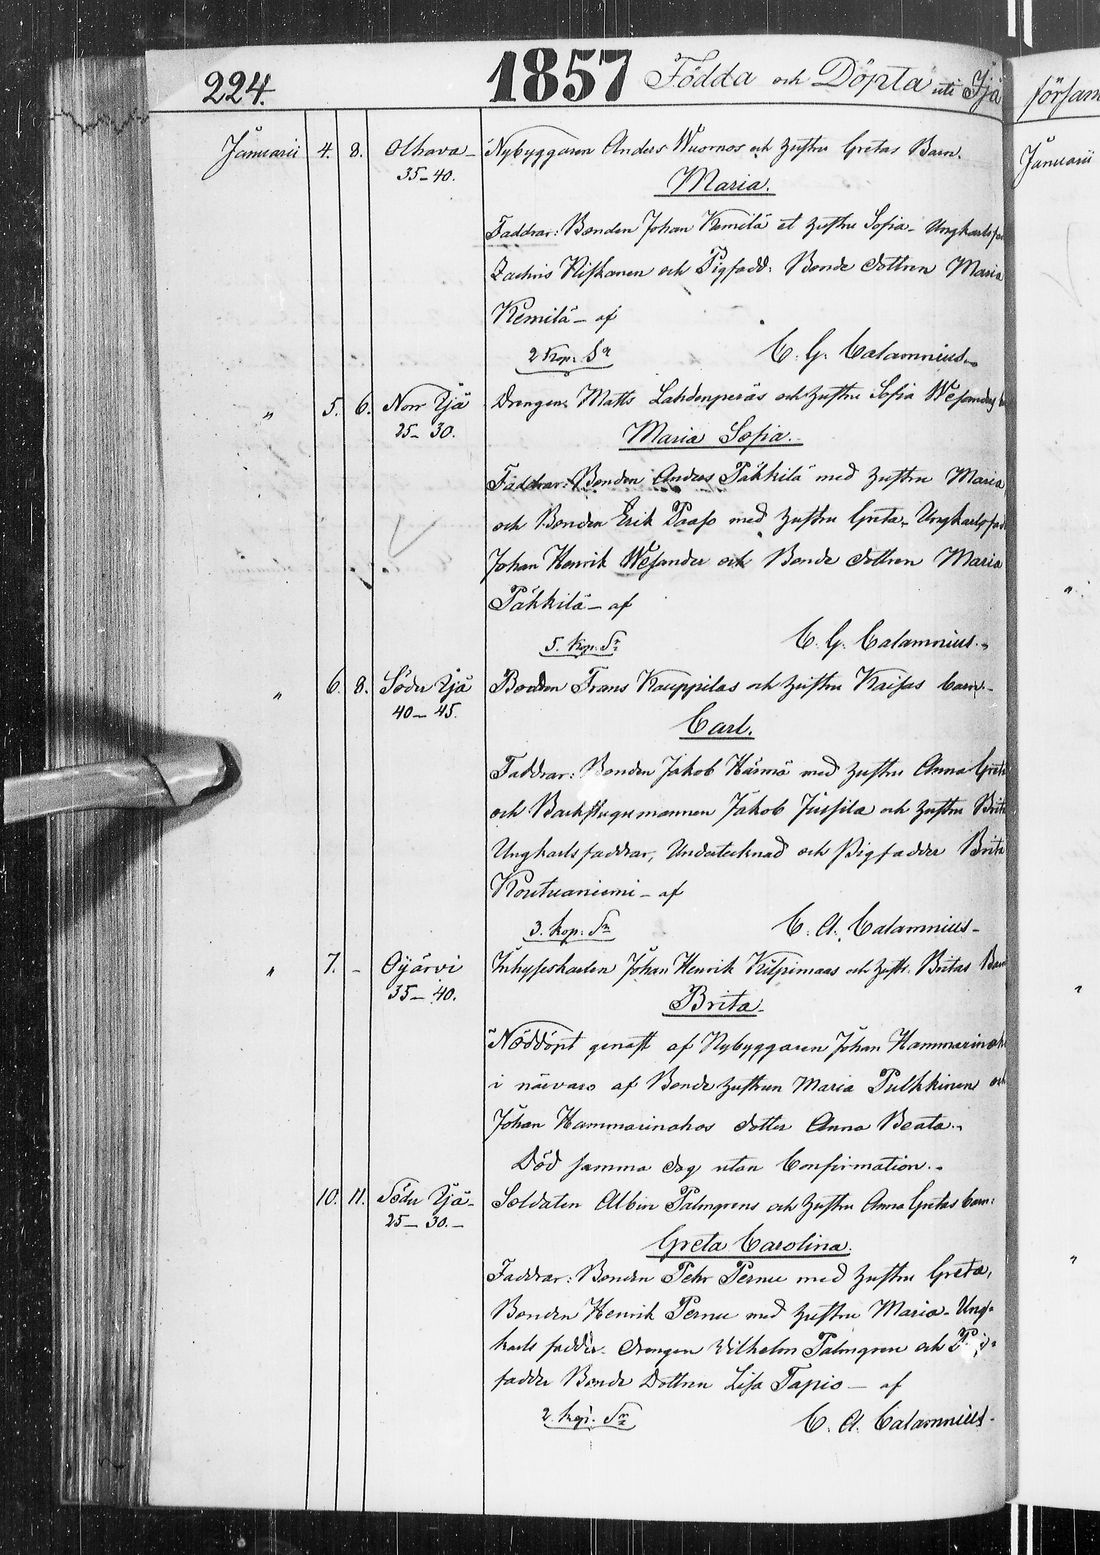 224. 1857 Födda och Döpta uti Ijä
Januarii 4. 8. Olhava Nybyggaren Anders Wuornos och hustru Gretas Barn.
35-40. Maria.
Faddrar: Bonden Johan Kemilä et hustru Sofia - Ungkarlsfad
Zachris Kiskanen och Pigfadd: Bonde dottren Maria
Kemilä - af
2 Kop. Sr C. G. Calamnius
" 5. 6. Norr Ijä Drengen Matts Lahdenperäs och hustru Sofia Wesanders
25-30. Maria Sofia.
Faddrar: Bonden Anders Päkkilä med hustru Maria
och Bonden Erik Paaso med hustru Greta - Ungkarlsfad
Johan Henrik Wesander och Bonde dottren Maria
Päkkilä - af
5. Kop. Sr C. G. Calamnius.
" 6. 8. Söder Ijä Bonden Frans Kauppilas och hustru Kaisas barn
40-45. Carl.
Faddrar: Bonden Jakob Härmä med hustru Anna Greta
och Backstugumannen Jakob Jussila och hustru Brita
Ungkarls faddrar, Undertecknad och Pigfadder Brita
Koutuaniemi - af
3. kop. Sr C. A. Calamnius -
" 7. - Oijärvi Inhyseskarlen Johan Henrik Kilpimaas och hustr. Britas Barn
35-40. Brita
Nöddöpt genast af Nybyggaren Johan Hammarinaho
i närvaro af Bonde hustrun Maria Pulkkinen och
Johan Hammarinahos dotter Anna Beata.
Död samma dag utan Confirmation.
10. 11. Söder Ijä Soldaten Albin Palmgrens och hustru Anna Gretas barn:
25-30. Greta Carolina.
Faddrar: Bonden Pehr Pernu med hustru Greta,
Bonden Henrik Pernu med hustru Maria - Ung-
karls fadder drengen Wilhelm Palmgren och Pig-
fadder Bonde Dottren Lisa Tapio - af
2. kop. Sr C. A. Calamnius -
försam
Januarii
"
"
"